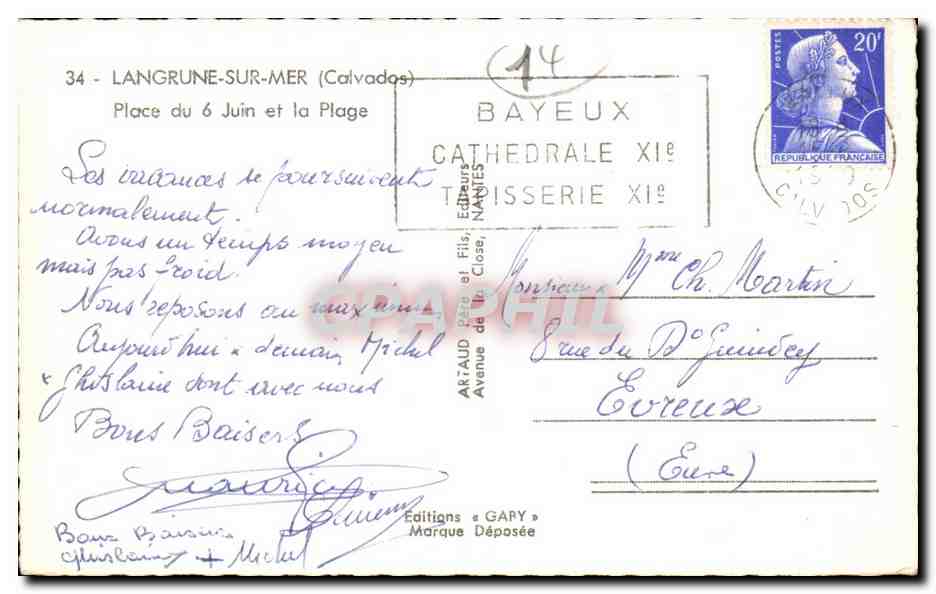 34 - LANGRUNE-SUR-MER (Calvados)
Place du 6 Juin et la Plage
14
BAYEUX
CATHEDRALE XIe
TAPISSERIE XIe
POSTES
20F
REPUBLIQUE FRANÇAISE
Les vacances se poursuivent
normalement.
Avons un temps moyen
mais pas froid.
Nous reposons au maximum
Aujourd'hui & demain Michel
& Ghislaine sont avec nous
Bons Baisers
Maurice
Bons Baisers
Ghislaine + Michel
ARTAUD Père et Fils, Editeurs
Avenue de la Close, NANTES
Monsieur & Mme Ch. Martin
8 rue du Dr Guindey
Evreux
(Eure)
Editions « GABY »
Marque Déposée
CPAPHIL